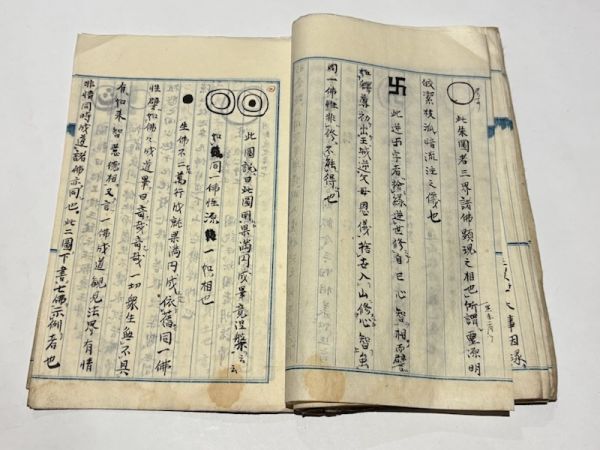 大事因縁
此朱圓者三界諸佛顕現之相也所謂靈源明
皎潔枝派暗流注之儀也
卍 此逆卍字者於縁逆世修自己心智相而譬
如釋尊初出王城逆父母恩儀捨世入山修心智
同一佛性非修不能得也
此圓説曰此圓果満円成畢竟涅槃云云
如同一佛性流一相也
生佛不二万行成就果満円成依舊同一佛
性譬如佛之成道畢曰奇哉奇哉一切衆生無不具
有如来智慧徳相又言一佛成道観見法界有情
非情同時成道諸佛亦同也此二圓下書七佛示者也